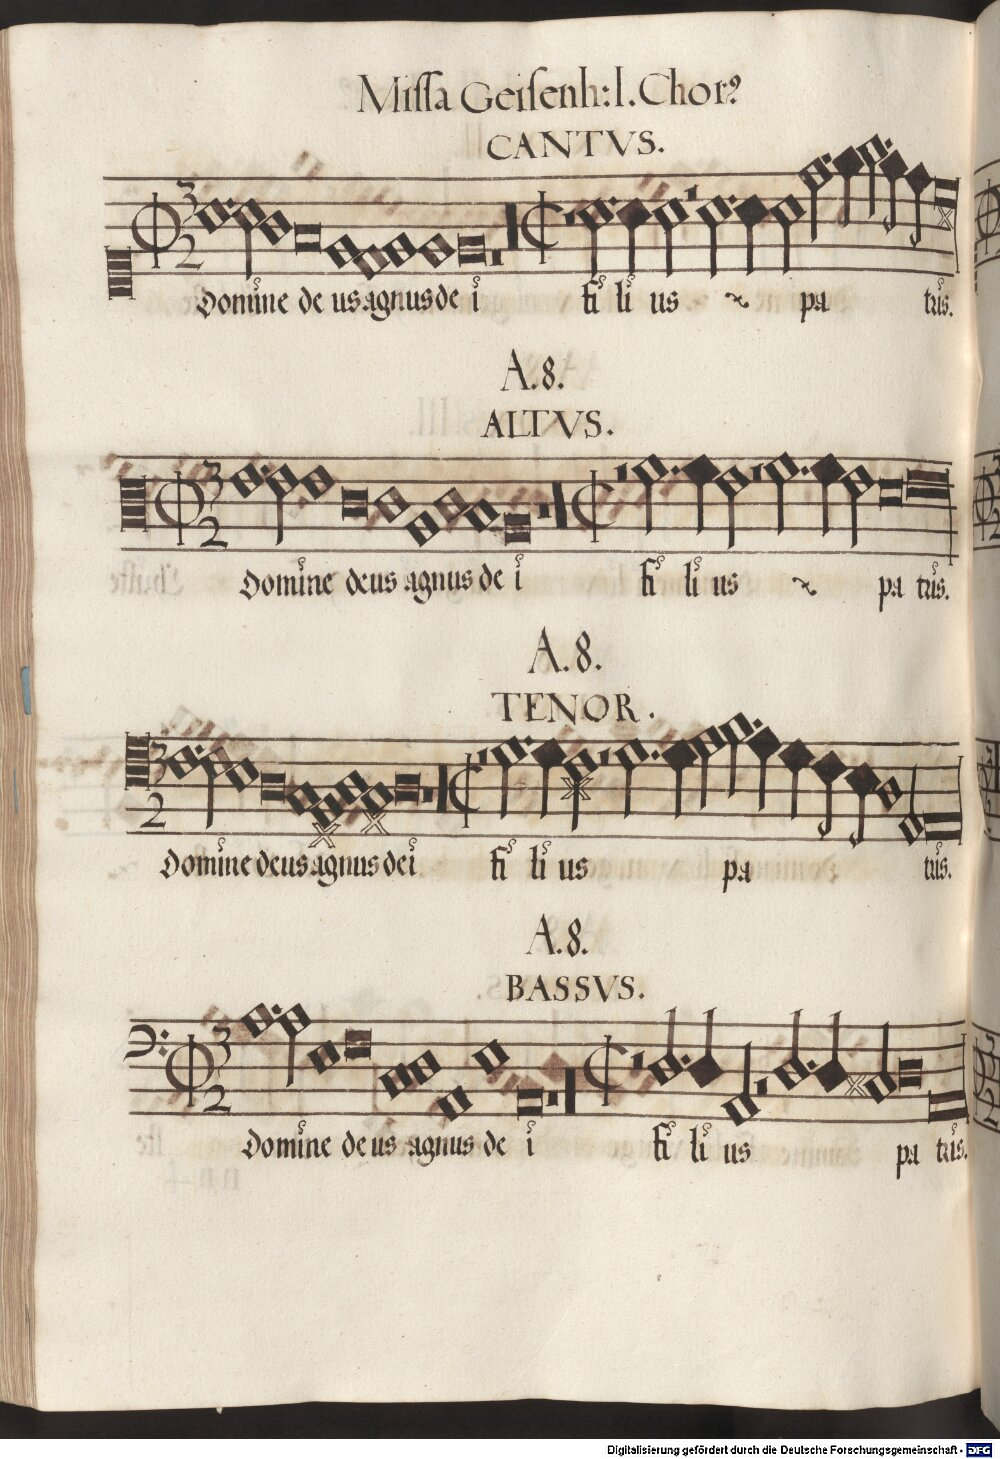 Missa Geisenh: I. Chor9
CANTVS.
3
2
Domine de us agnus de i fi li us pa tris.
A. 8.
ALTVS.
3
2
Domine deus agnus de i fi li us pa tris.
A. 8.
TENOR.
3
2
Domine deus agnus dei fi li us pa tris.
A. 8.
BASSVS.
3
2
Domine de us agnus de i fi li us pa tris.
Digitalisierung gefördert durch die Deutsche Forschungsgemeinschaft - DFG